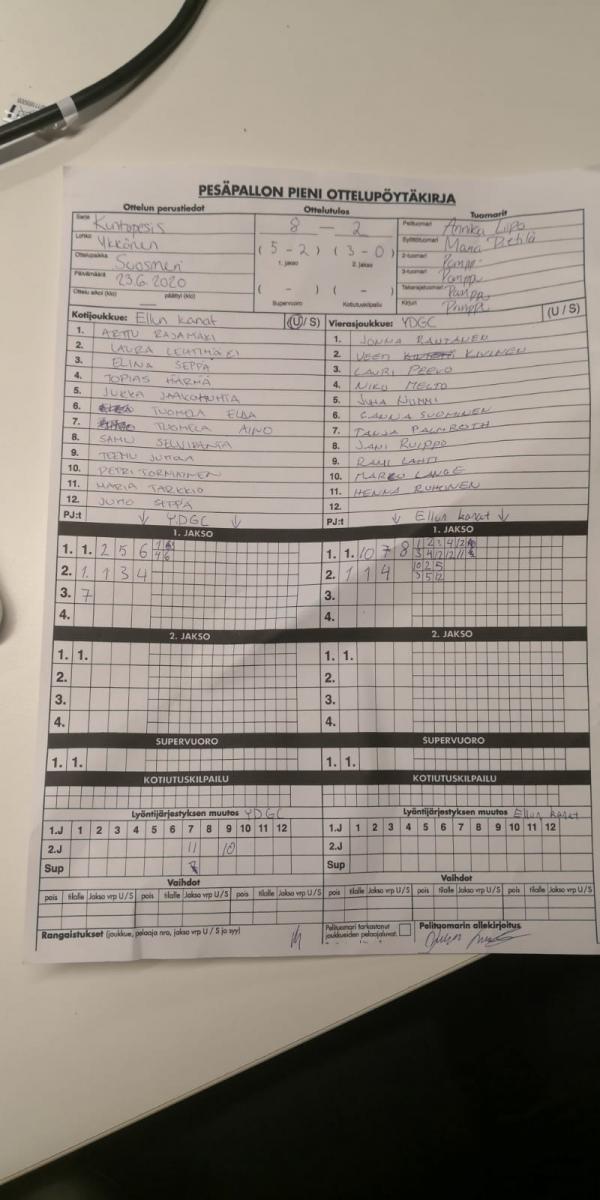 PESÄPALLON PIENI OTTELUPÖYTÄKIRJA
Ottelun perustiedot Ottelutulos Tuomarit
Sarja Kuntopesis 8 – 2 Pelituomari Annika Lipo
Lohko Ykkönen (5-2) (3-0) Syöttötuomari
Ottelupaikka 1. jakso 2. jakso 2-tuomari Pamppa
Suosmeri
Päivämäärä 23.6.2020 ( - ) ( - ) 3-tuomari Pamppa
Takarajatuomari Pamppa
Ottelu alkoi (klo) päättyi (klo) Supervuoro Kotiutuskilpailu Kirjuri Pamppa
Kotijoukkue: Ellun kanat (U/S) Vierasjoukkue: YDGC (U/S)
1. ARTTU RAJAMÄKI 1. JONNA RAUTANEN
2. LAURA LEHTIMÄKI 2. VEETI KIVINEN
3. ELINA SEPPÄ 3. LAURI PEEVO
4. TOPIAS HÄRMÄ 4. NIKO MELTO
5. JUKKA JAAKOHUHTA 5. JUHA NUMMI
6. TUOMELA ELLA 6. SANNA SUOMINEN
7. TUOMELA AINO 7. TANJA PALMROTH
8. SAMU SELVIRANTA 8. JANI RUIPPO
9. TEEMU 9. RAMI LAHTI
10. PETRI TORMAINEN 10. MARKO LANGE
11. MARIA TARKKIO 11. HENNA RUHONEN
12. JUHO SEPPÄ 12.
PJ:t YDGC PJ:t Ellun kanat
1. JAKSO 1. JAKSO
1. 1. 2 5 6 1. 1. 10 7 8
2. 1 1 3 4 2. 1 1 4
3. 7 3.
4. 4.
2. JAKSO 2. JAKSO
1. 1. 1. 1.
2. 2.
3. 3.
4. 4.
SUPERVUORO SUPERVUORO
1. 1. 1. 1.
KOTIUTUSKILPAILU KOTIUTUSKILPAILU
Lyöntijärjestyksen muutos YDGC Lyöntijärjestyksen muutos Ellun kanat
1.J 1 2 3 4 5 6 7 8 9 10 11 12 1.J 1 2 3 4 5 6 7 8 9 10 11 12
2.J 11 10 2.J
Sup Sup
Vaihdot Vaihdot
pois tilalle Jakso vrp U/S pois tilalle Jakso vrp U/S pois tilalle Jakso vrp U/S pois tilalle Jakso vrp U/S pois tilalle Jakso vrp U/S pois tilalle Jakso vrp U/S
Rangaistukset (joukkue, pelaaja nro, jakso vrp U/S ja syy) Pelituomari tarkastanut joukkueiden pelaajaluvat. Pelituomarin allekirjoitus